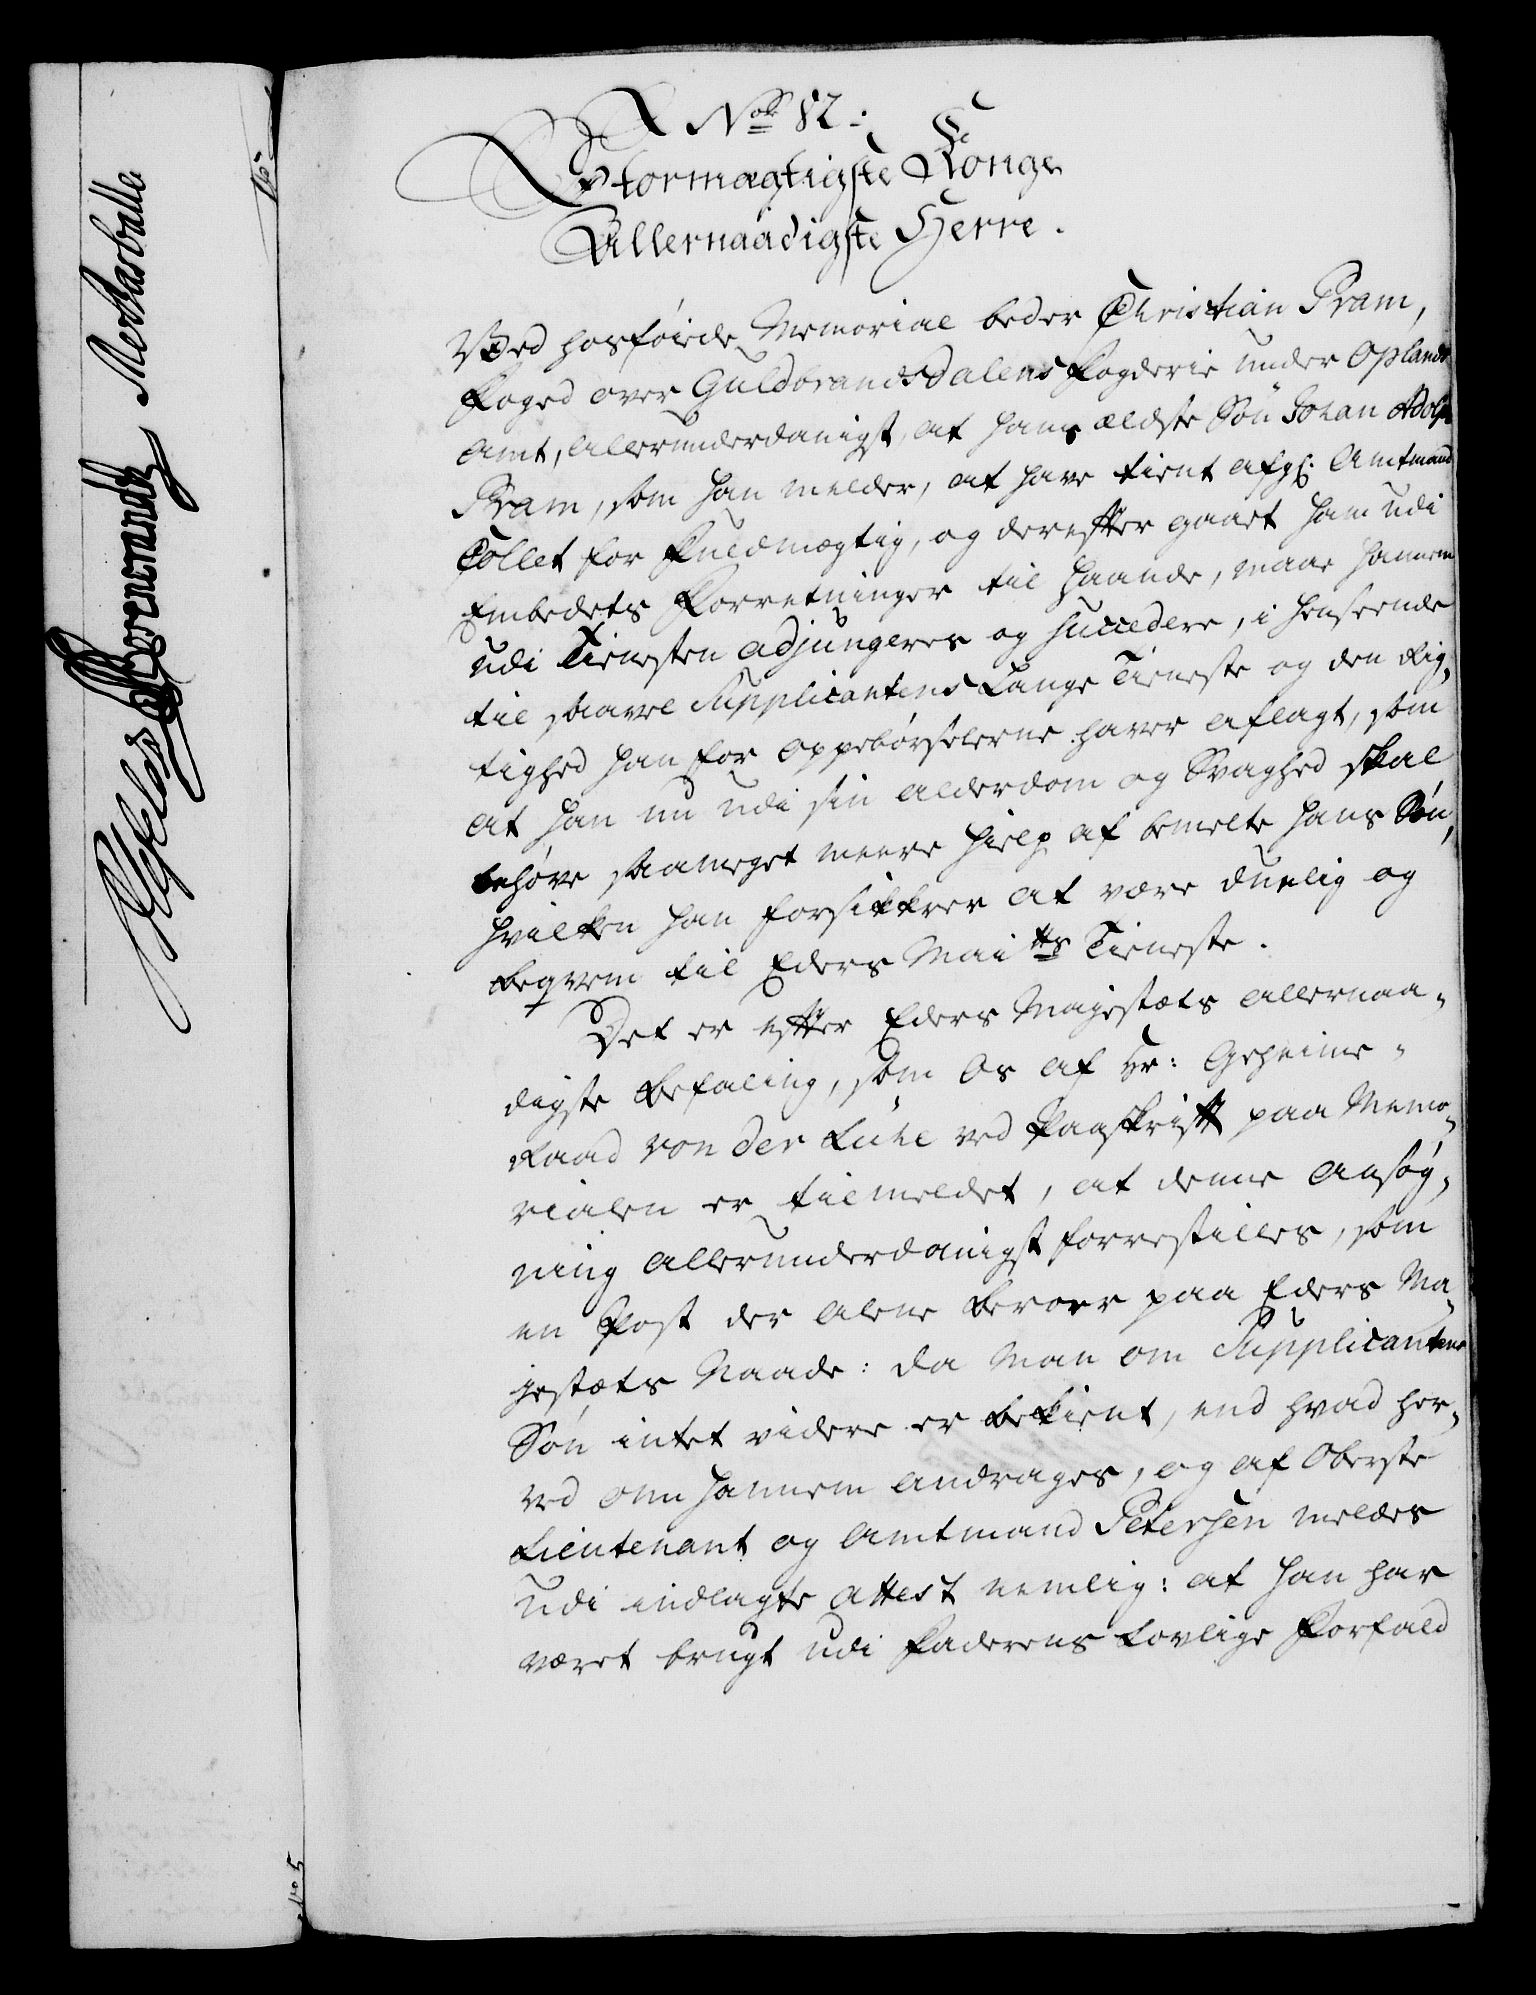 No 82.
Stormægtigste Konge
Allernaadigste Herre.
Ved hosføiede Memorial beder Christian Pram,
Foged over Guldbrandsdalens Fogderie under Oplands
Amt, allerunderdanigst, at hans ældste Søn Johan Adolph
Pram, som han melder, at have tient afg: Amtmand
Collet for Fuldmægtig, og derefter gaaet ham udi
Embedets Forretninger til Haande, maae hannem
udi Tienesten adjungeres og succedere, i henseende
til saavel Supplicantens Lange Tieneste og den Rig-
tighed han for Oppebørselerne haver aflagt, som
at han nu udi sin Alderdom og Svaghed skal
behøve saameget meere Hielp af bemelte hans Søn,
hvilken han forsikkrer at være duelig og
beqvem til Eders Maitts Tieneste.
Det er efter Eders Majestæts allernaa-
digste Befaling, som os af Hr: Geheime-
Raad von der Lühe ved Paaskrift paa Memo-
rialen er tilmeldet, at denne Ansøg-
ning allerunderdanigst forrestilles, som
en Post der alene beroer paa Eders Ma-
jestæts Naade: da Man om Supplicantens
Søn intet videre er bekient, end hvad her-
ved om hannem andrages, og af Oberste
Lieutenant og Amtmand Petersen meldes
udi indlagte Attest nemlig: at han har
været brugt udi Faderens Lovlige Forfald